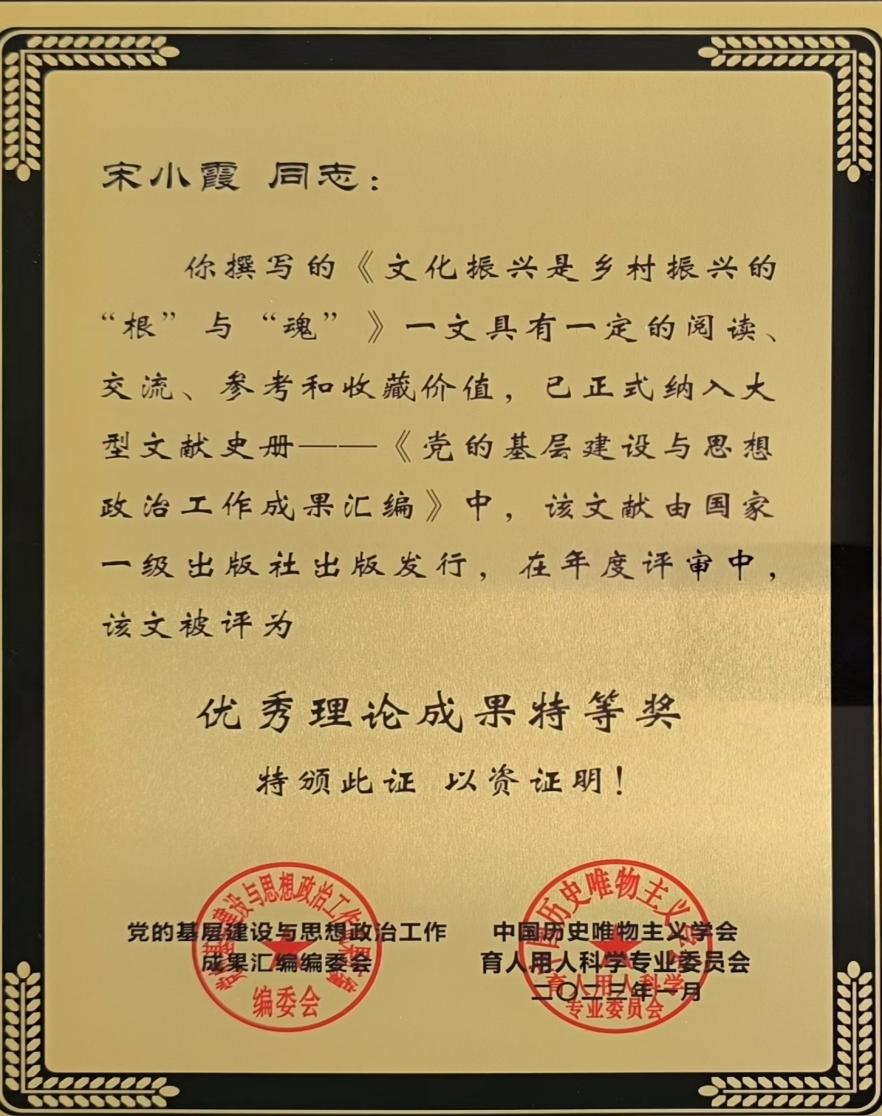 宋小霞 同志：
你撰写的《文化振兴是乡村振兴的
“根”与“魂”》一文具有一定的阅读、
交流、参考和收藏价值，已正式纳入大
型文献史册——《党的基层建设与思想
政治工作成果汇编》中，该文献由国家
一级出版社出版发行，在年度评审中，
该文被评为
优秀理论成果特等奖
特颁此证 以资证明！
党的基层建设与思想政治工作
成果汇编编委会
编委会
中国历史唯物主义学会
育人用人科学专业委员会
二〇二三年一月
中国历史唯物主义学会
育人用人科学
专业委员会